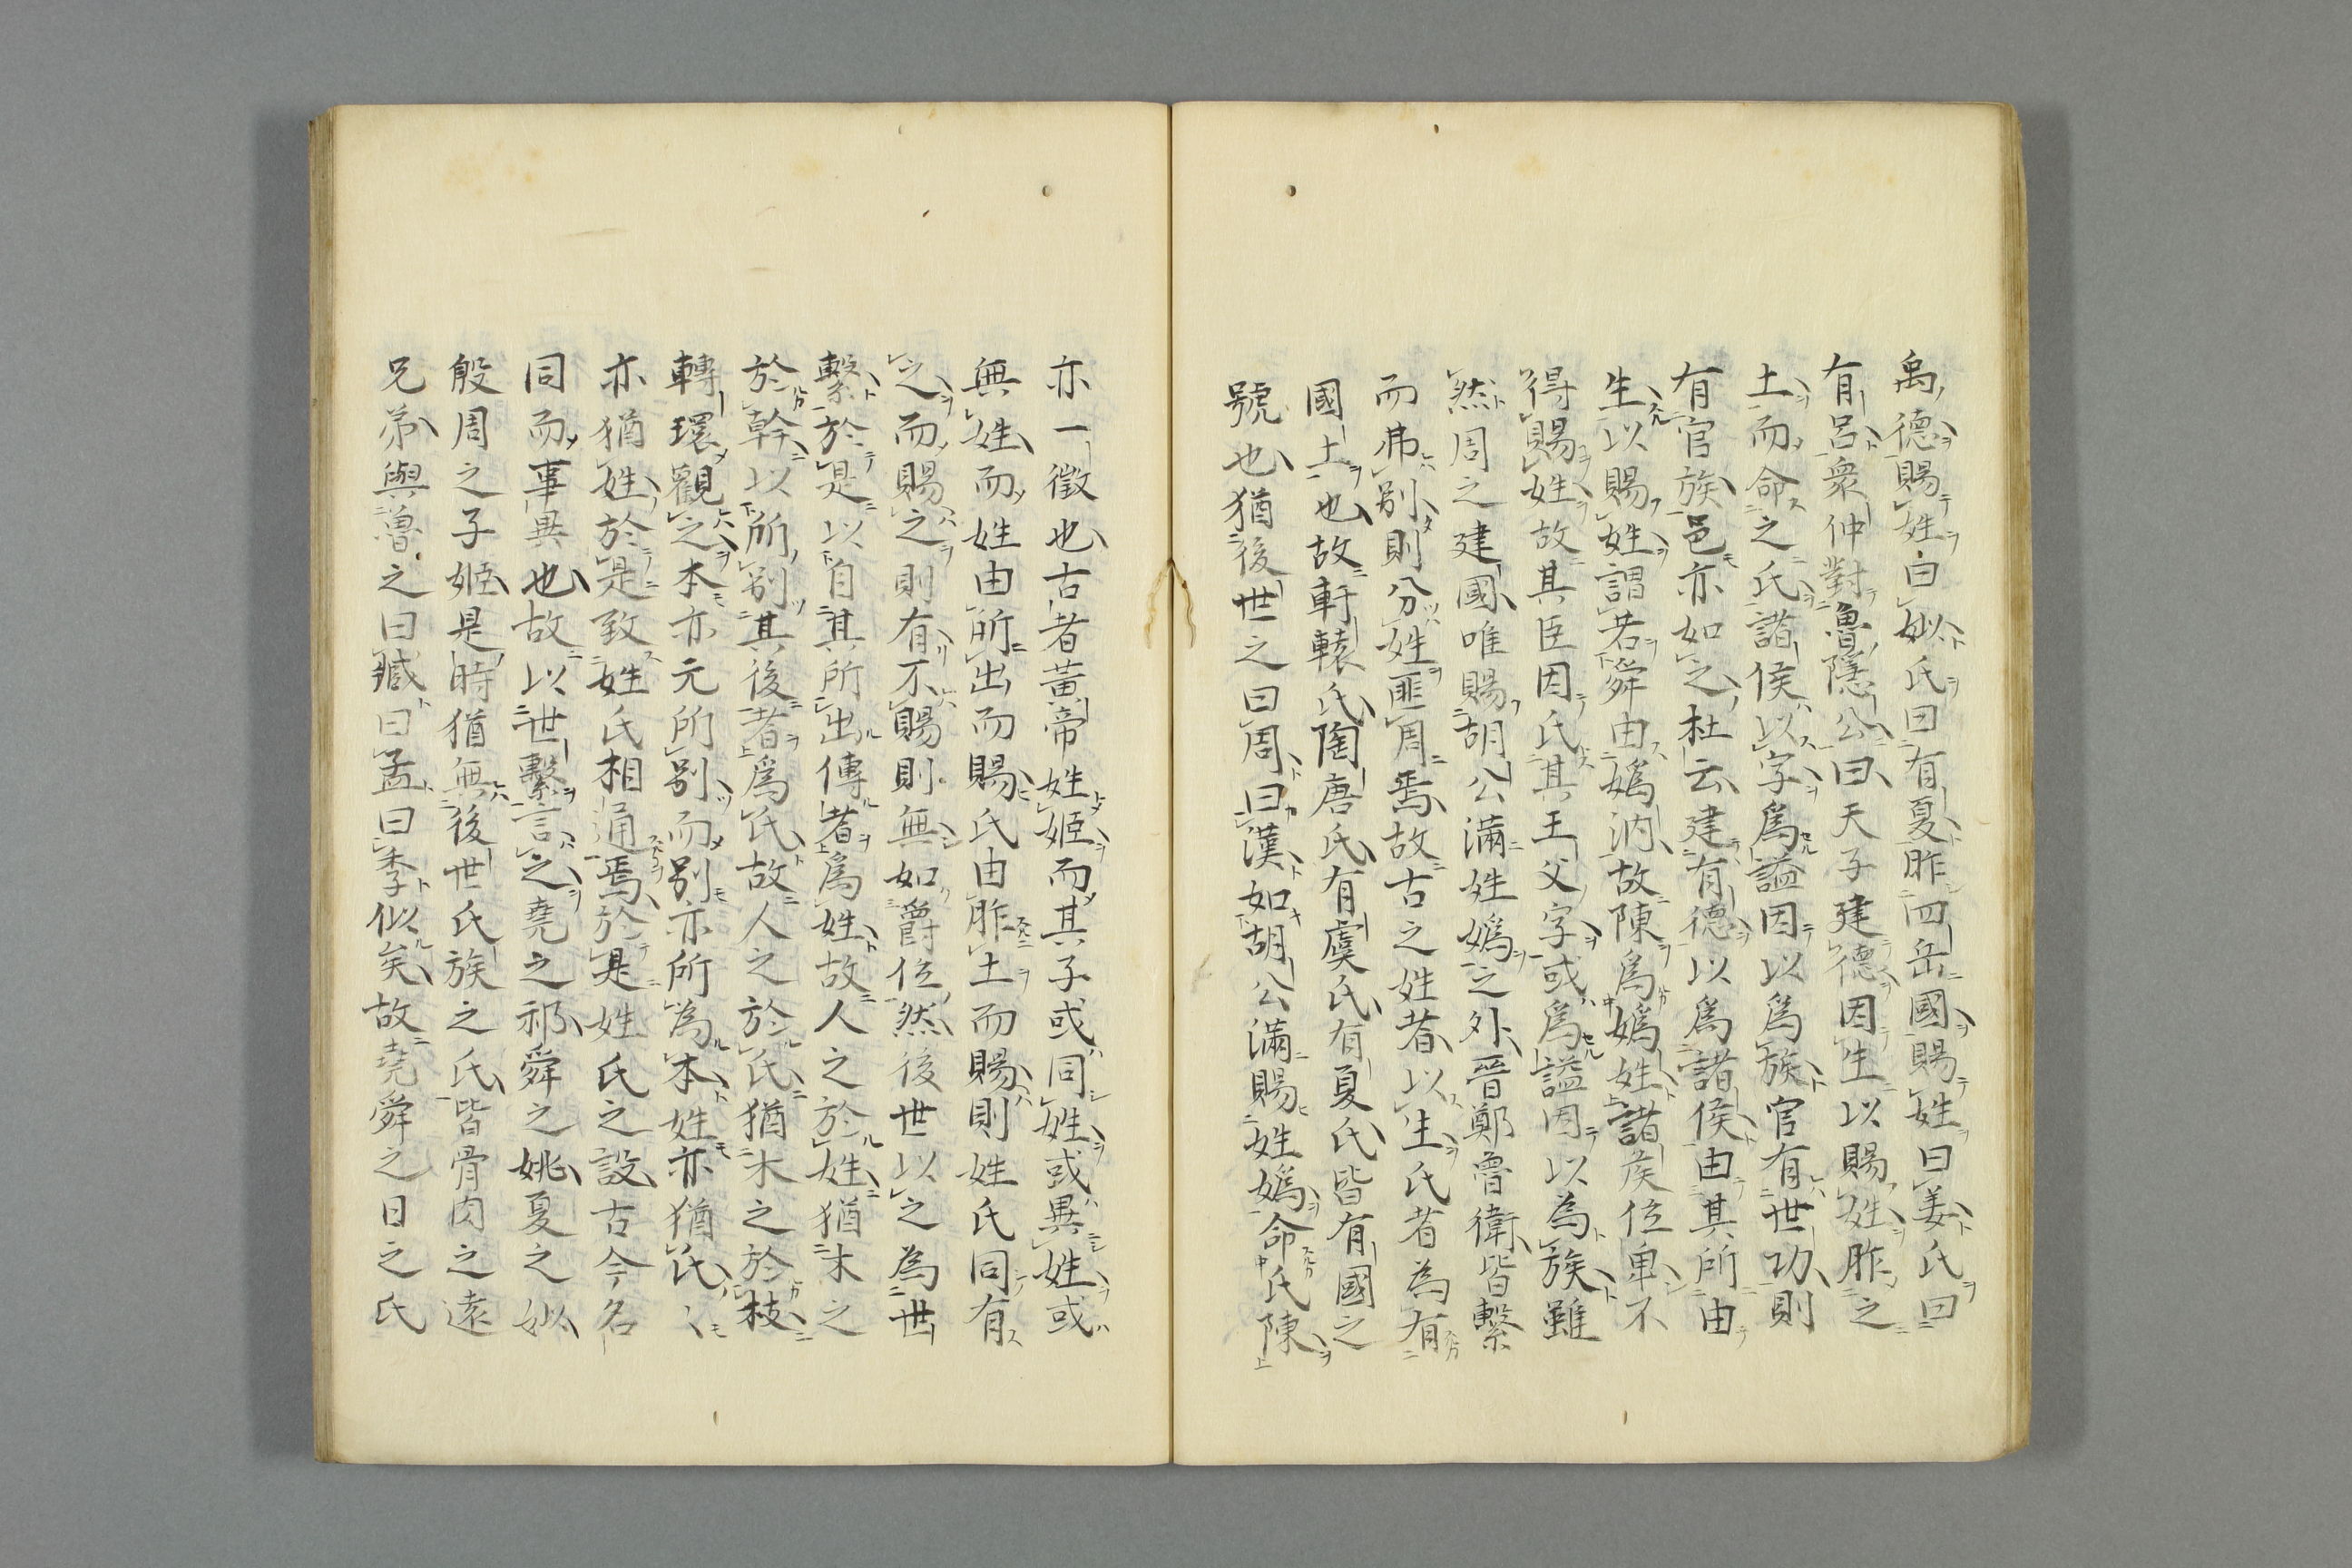 禹德賜姓曰姒氏曰有夏胙四岳國賜姓曰姜氏曰
有呂衆仲對魯隱公曰天子建德因生以賜姓胙之
土而命之氏諸侯以字為謚因以為族官有世功則
有官族邑亦如之杜云建有德以為諸侯由其所由
生以賜姓謂若舜由嬀汭故陳為嬀姓諸侯位卑不
得賜姓故其臣因氏其王父字或為謚因以為族雖
然周之建國唯賜胡公滿姓嬀之外晉鄭魯衛皆繫
而弗別則分姓匪周焉故古之姓者以生氏者為有
國土也故軒轅氏陶唐氏有虞氏有夏氏皆有國之
號也猶後世之曰周曰漢如胡公滿賜姓嬀命氏陳
亦一徵也古者黃帝姓姬而其子或同姓或異姓或
無姓而姓由所出而賜氏由胙土而賜則姓氏同有
之而賜之則有不賜則無如爵位然後世以之為世
繫於是以自其所出傳者為姓故人之於姓猶木之
於幹以所別其後者為氏故人之於氏猶木之於枝
轉環觀之本亦元所別而別亦所為本姓亦猶氏〻
亦猶姓於是致姓氏相通焉於是姓氏之設古今名
同而事異也故以世繫言之堯之祁舜之姚夏之姒
殷周之子姬是時猶無後世氏族之氏皆骨肉之遠
兄弟與魯之曰臧曰孟曰季似矣故堯舜之日之氏